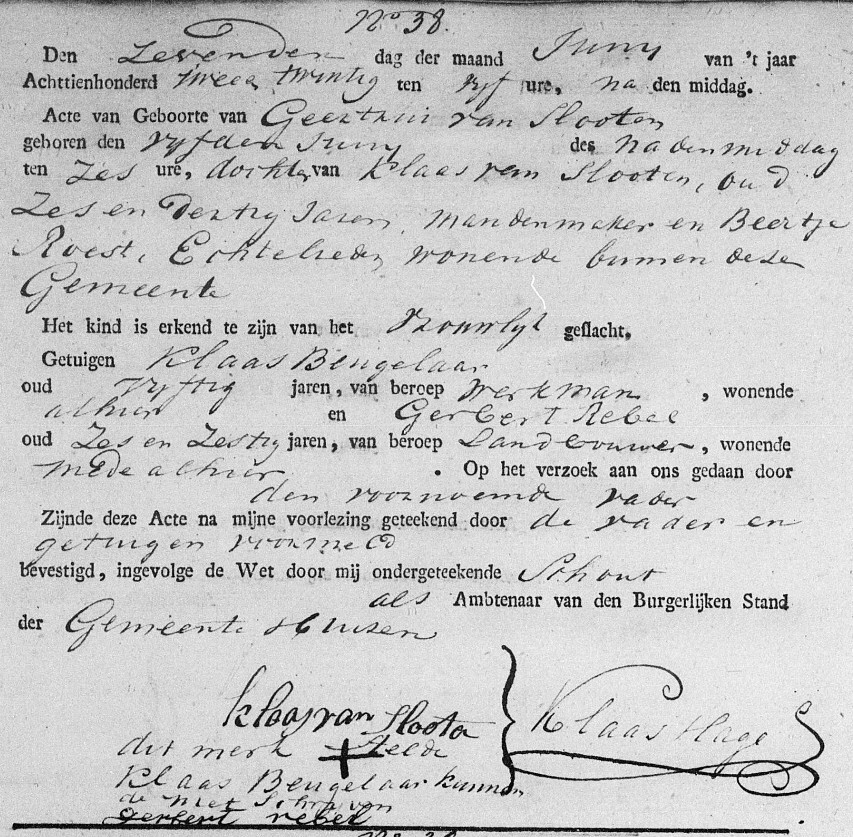 No 38.
Den Zevenden dag der maand Juny van 't jaar
Achttienhonderd twee twintig ten vyf ure, na den middag.
Acte van Geboorte van Geertrui van Slooten
geboren den vyfden Juny des Nadenmiddag
ten Zes ure, dochter van Klaas van Slooten, oud
Zes en Dertig Jaren, mandenmaker en Beertje
Roest, Echtelieden wonende binnen deze
Gemeente
Het kind is erkend te zijn van het Vrouwlyk geslacht.
Getuigen Klaas Beugelaar
oud vyftig jaren, van beroep Werkman, wonende
alhier en Gerbert Rebel
oud Zes en Zestig jaren, van beroep Landbouwer, wonende
mede alhier. Op het verzoek aan ons gedaan door
den voornoemde vader
Zijnde deze Acte na mijne voorlezing geteekend door de vader en
getuigen voormeld
bevestigd, ingevolge de Wet door mij ondergeteekende Schout
als Ambtenaar van den Burgerlijken Stand
der Gemeente Huizen
klaas van Slooten
dit merk + stelde
Klaas Beugelaar kunnen
de niet Schryven
gerbert rebel
Klaas Hage